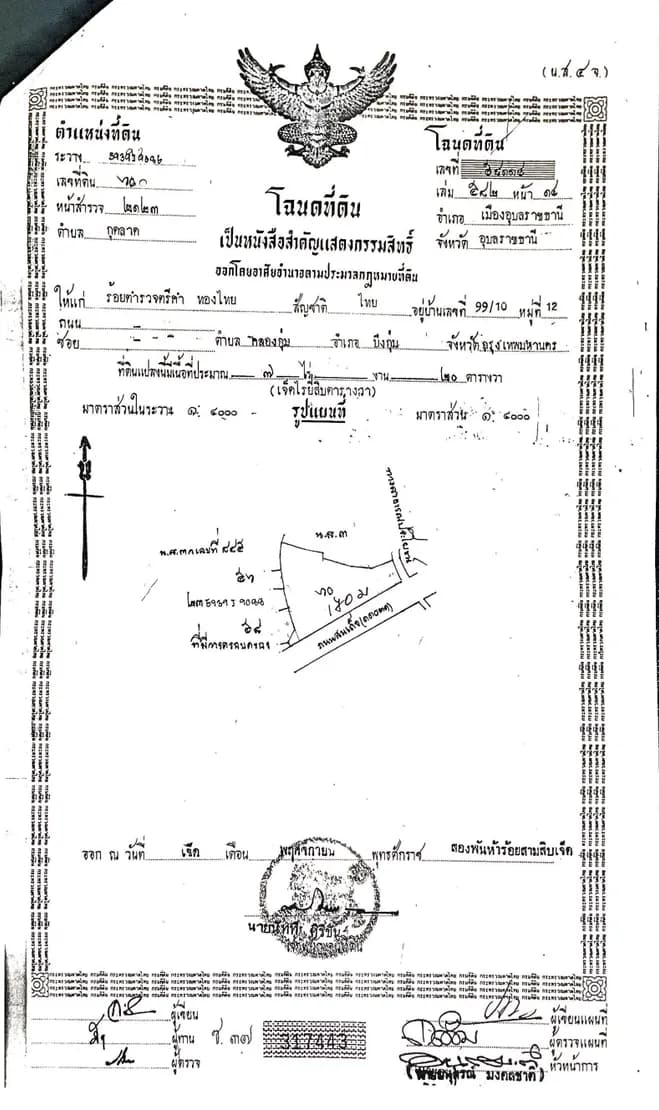 (น.ส.๔ จ.)
ตำแหน่งที่ดิน
ระวาง
เลขที่ดิน ๒๐
หน้าสำรวจ ๒๑๒๓
ตำบล กุดลาด
โฉนดที่ดิน
เลขที่
เล่ม ๕๔๒ หน้า ๑๔
อำเภอ เมืองอุบลราชธานี
จังหวัด อุบลราชธานี
โฉนดที่ดิน
เป็นหนังสือสำคัญแสดงกรรมสิทธิ์
ออกโดยอาศัยอำนาจตามประมวลกฎหมายที่ดิน
ให้แก่ ร้อยตำรวจตรีคำ ทองไทย สัญชาติ ไทย อยู่บ้านเลขที่ 99/10 หมู่ที่ 12
ถนน –
ซอย - - - ตำบล คลองกุ่ม อำเภอ บึงกุ่ม จังหวัด กรุงเทพมหานคร
ที่ดินแปลงนี้มีเนื้อที่ประมาณ ๗ ไร่ งาน ๒๐ ตารางวา
(เจ็ดไร่ยี่สิบตารางวา)
มาตราส่วนในระวาง ๑: ๔๐๐๐ รูปแผนที่ มาตราส่วน ๑: ๔๐๐๐
น
ทางสาธารณประโยชน์
น.ส.๓
น.ส.๓ก เลขที่ ๘๔๕
๕๓
๒๐
๖๘
ที่มีการครอบครอง
ออก ณ วันที่ เจ็ด เดือน พฤศจิกายน พุทธศักราช สองพันห้าร้อยสามสิบเจ็ด
เจ้าพนักงานที่ดิน
ผู้เขียน
ผู้ทาน
ผู้ตรวจ
ช. ๓๗
317443
ผู้เขียนแผนที่
ผู้ตรวจแผนที่
หัวหน้าการ
มงคลชาติ)